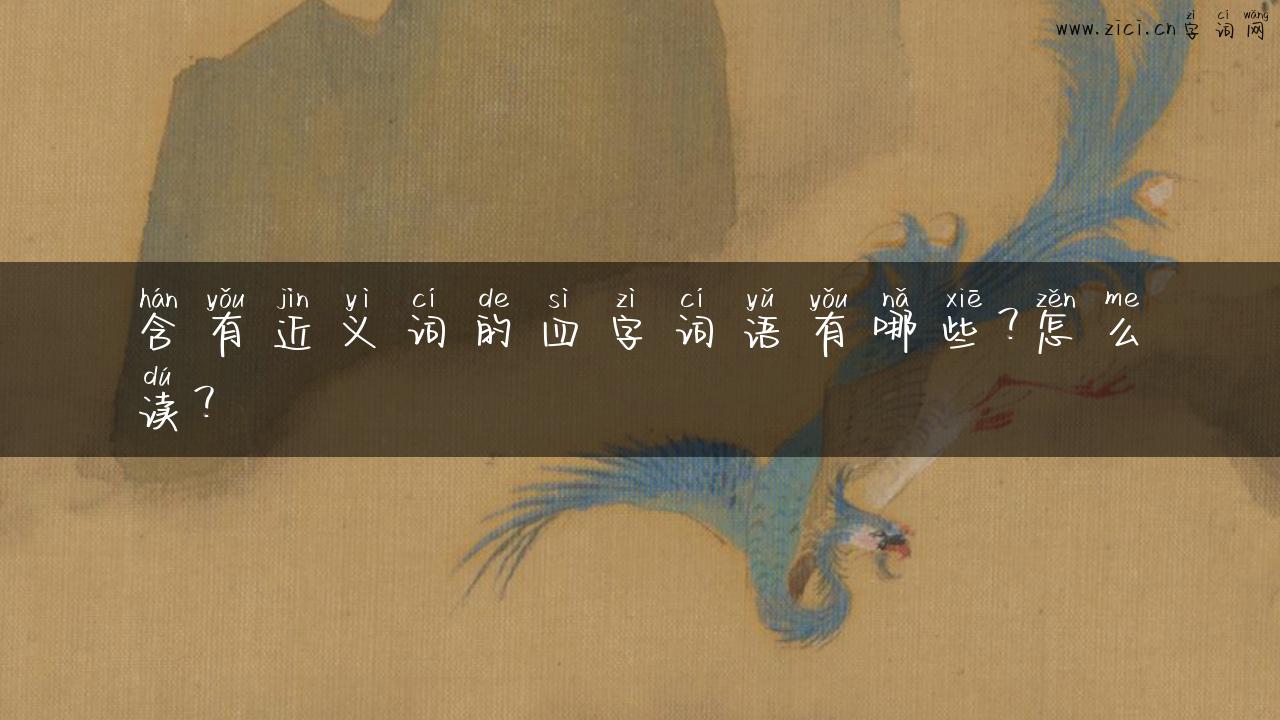 zì cí wǎng
www.zici.cn 字词网
hán yǒu jìn yì cí de sì zì cí yǔ yǒu nǎ xiē zěn me
含有近义词的四字词语有哪些？怎么
dú
读？